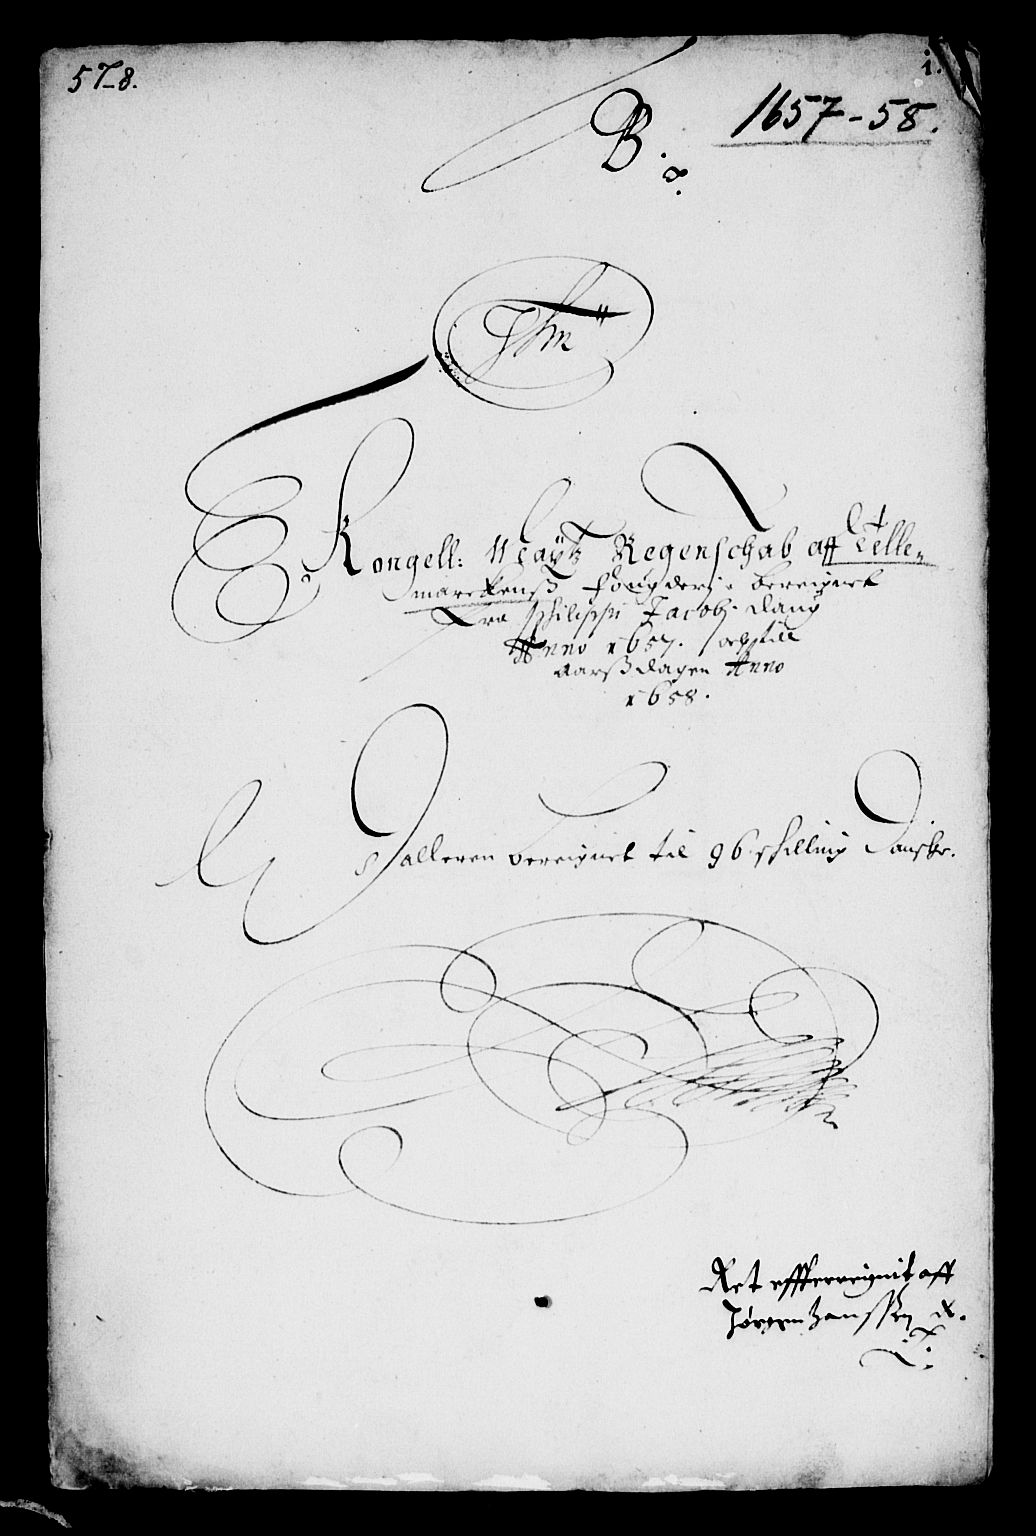 57-8.
1.
1657-58.
B.
Kongell: Maÿtz Regenschab aff Telle=
marckenß fougderj bereignet
fra Philippi Jacobj dag
Anno 1657. och till
aarßdagen Anno
1658.
Dalleren bereignet til 96 skilling Danske.
Ret effterreignit aff
Jørgen hanssen